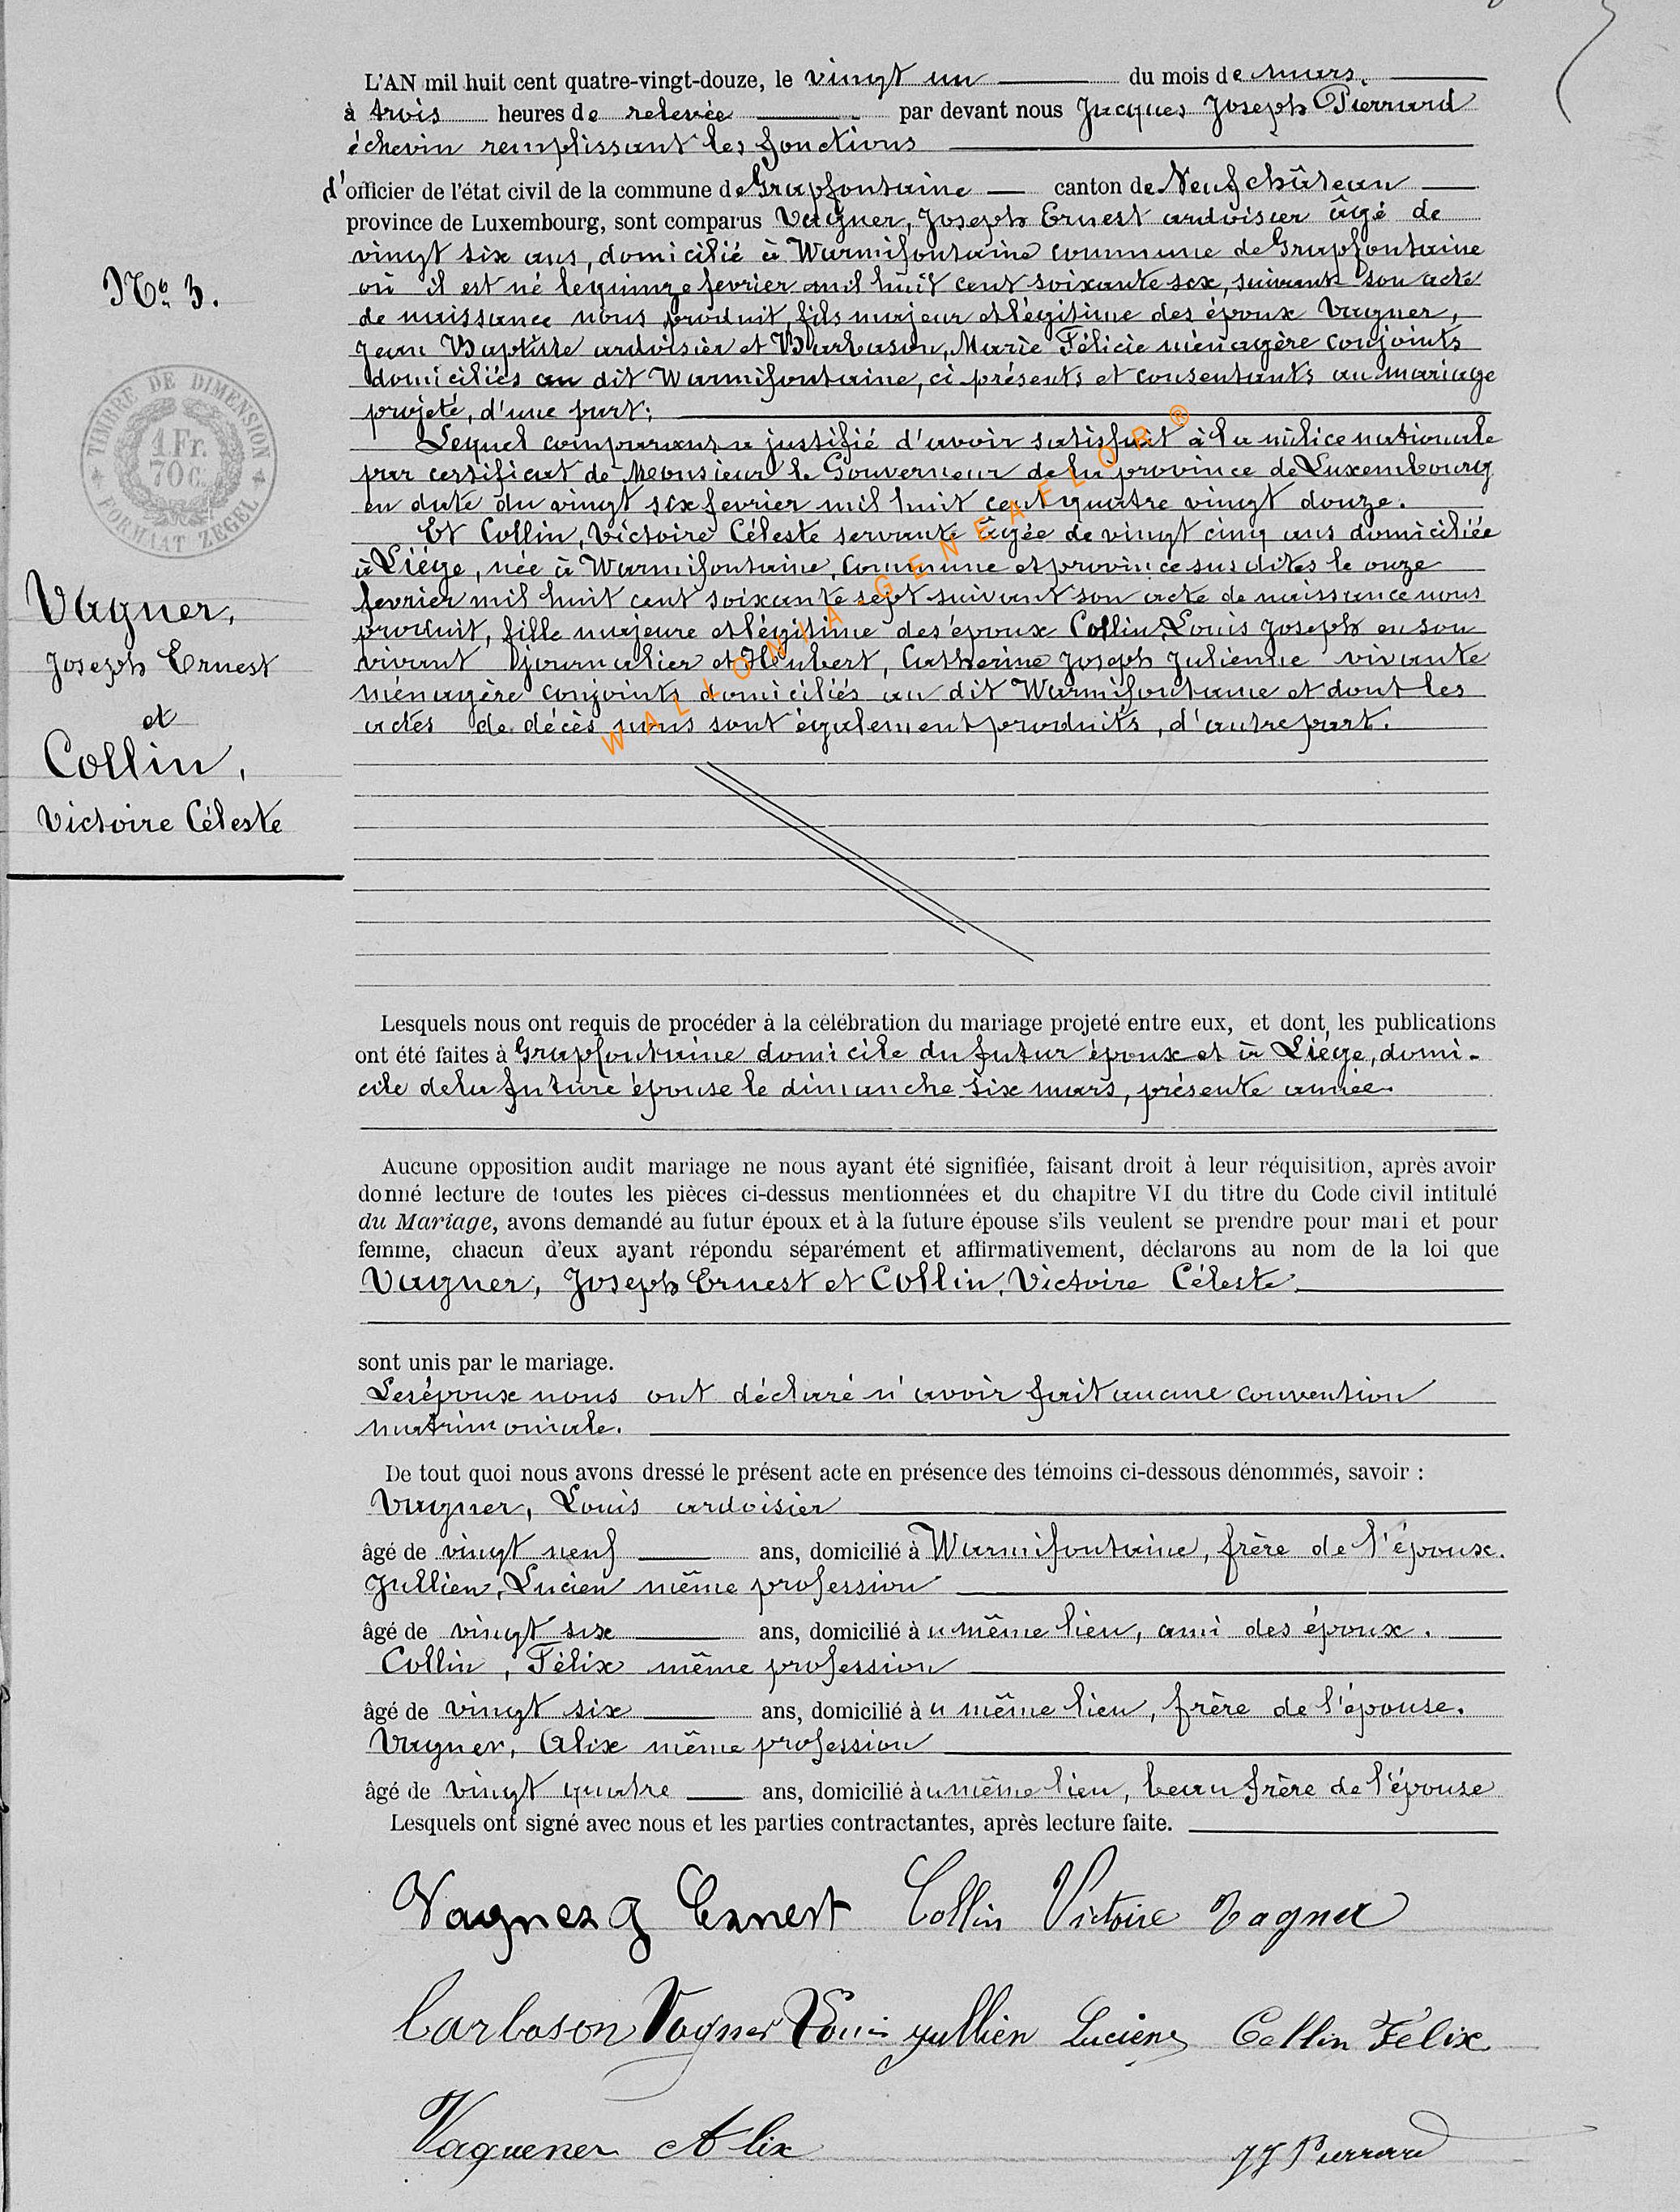 L'AN mil huit cent quatre-vingt-douze, le vingt un du mois de mars,
à trois heures de relevée par devant nous Jacques Joseph Pierrard
échevin remplissant les fonctions
d'officier de l'état civil de la commune de Grapfontaine canton de Neufchâteau
province de Luxembourg, sont comparus Vagner, Joseph Ernest ardoisier âgé de
vingt six ans, domicilié à Warmifontaine commune de Grapfontaine
où il est né le quinze fevrier mil huit cent soixante six, suivant son acte
de naissance nous produit, fils majeur et légitime des époux Vagner,
Jean Baptiste ardoisier et Barbason, Marie Félicie ménagère conjoints
domiciliés au dit Warmifontaine, ci présents et consentants au mariage
projeté, d'une part;
Lequel comparant a justifié d'avoir satisfait à la milice nationale
par certificat de Monsieur le Gouverneur de la province de Luxembourg
en date du vingt six fevrier mil huit cent quatre vingt douze.
Et Collin, Victoire Céleste servante âgée de vingt cinq ans domiciliée
à Liége, née à Warmifontaine, commune et province susdites le onze
fevrier mil huit cent soixante sept suivant son acte de naissance nous
produit, fille majeure et légitime des époux Collin, Louis Joseph en son
vivant journalier et Heubert, Catherine Joseph Julienne vivante
ménagère conjoints domiciliés au dit Warmifontaine et dont les
actes de décès nous sont également produits, d'autre part.
WALLONIA-GENEAFLOR®
No 3.
TIMBRE DE DIMENSION
1 Fr.
70 c.
FORMAAT ZEGEL
Vagner,
Joseph Ernest
et
Collin,
Victoire Céleste
Lesquels nous ont requis de procéder à la célébration du mariage projeté entre eux, et dont les publications
ont été faites à Grapfontaine domicile du futur époux et à Liége, domi-
cile de la future épouse le dimanche six mars, présente année.
Aucune opposition audit mariage ne nous ayant été signifiée, faisant droit à leur réquisition, après avoir
donné lecture de toutes les pièces ci-dessus mentionnées et du chapitre VI du titre du Code civil intitulé
du Mariage, avons demandé au futur époux et à la future épouse s'ils veulent se prendre pour mari et pour
femme, chacun d'eux ayant répondu séparément et affirmativement, déclarons au nom de la loi que
Vagner, Joseph Ernest et Collin, Victoire Céleste
sont unis par le mariage.
Les époux nous ont déclaré n'avoir fait aucune convention
matrimoniale.
De tout quoi nous avons dressé le présent acte en présence des témoins ci-dessous dénommés, savoir :
Vagner, Louis ardoisier
âgé de vingt neuf ans, domicilié à Warmifontaine, frère de l'époux.
Jullien, Lucien même profession
âgé de vingt six ans, domicilié au même lieu, ami des époux.
Collin, Félix même profession
âgé de vingt six ans, domicilié au même lieu, frère de l'épouse.
Vagner, Alix même profession
âgé de vingt quatre ans, domicilié au même lieu, beau frère de l'épouse
Lesquels ont signé avec nous et les parties contractantes, après lecture faite.
Vagner J Ernest Collin Victoire Vagner
barbason Vagner Louis Jullien Lucien Collin Félix
Vaguener Alix JJ Pierrard